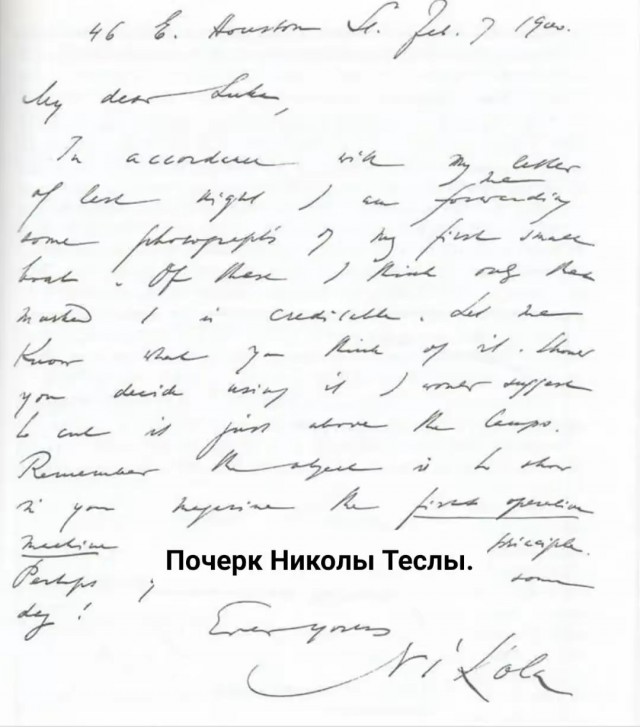 46 E. Houston St. Feb. 7 1900.
My dear Luka,
In accordance with my letter
of last night I am forwarding
some photographs of my first small
boat. Of these I think only that
marked 1 is creditable. Let me
know what you think of it. Should
you decide using it I would suggest
to cut it just above the lamps.
Remember the object is to show
in your magazine the first operative
machine principle.
Почерк Николы Теслы.
Perhaps some
day!
Ever yours
Nikola